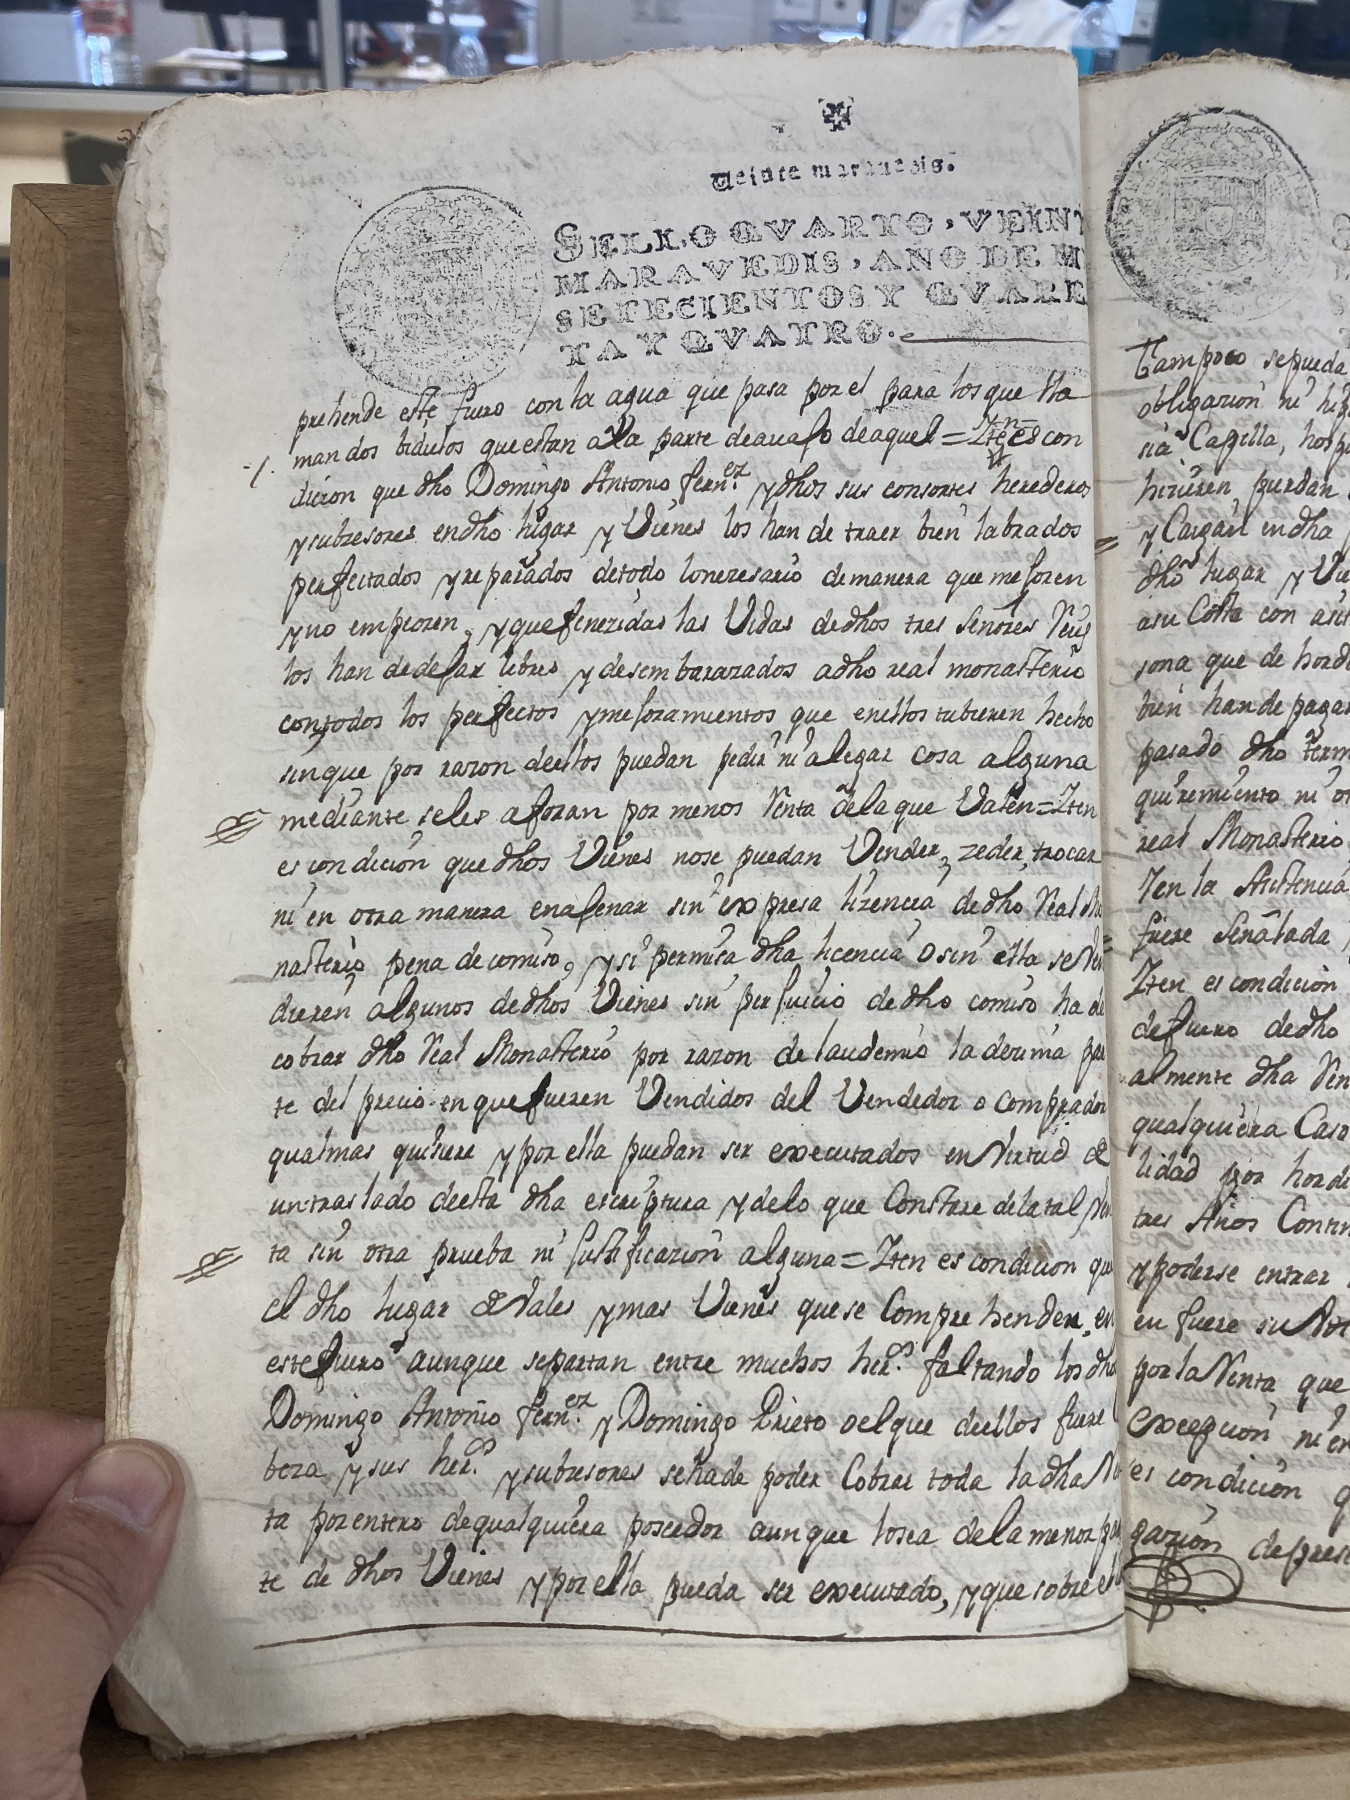 Veinte maravedis.
SELLO QVARTO, VEINT
MARAVEDIS, AÑO DE M
SETECIENTOS Y QVARE
TA Y QVATRO.
prehende este fuero con la agua que pasa por el para los que lla
man dos bidulos que estan a la parte de auajo de aquel = Iten es con
dicion que dho Domingo Antonio fern.ez y dhos sus consortes herederos
y subzesores en dho lugar y Vienes los han de traer bien labrados
perfectados y reparados de todo lo nezesario de manera que mejoren
y no empeoren, y que fenezidas las Vidas de dhos tres Señores Reies
los han de dejar libres y desembarazados a dho real monasterio
con todos los perfectos y mejoramientos que en ellos tubieren hecho
sin que por razon de ellos puedan pedir ni alegar cosa alguna
mediante se les aforan por menos Renta de la que Valen = Iten
es condicion que dhos Vienes no se puedan Vender, zeder, trocar
ni en otra manera enajenar sin expresa lizencia de dho Real Mo
nasterio pena de comiso, y si permisa dha licencia o sin ella se Ven
dieren algunos de dhos Vienes sin perjuicio de dho comiso ha de
cobrar dho Real Monasterio por razon de laudemio la dezima par
te del precio en que fueren Vendidos del Vendedor o comprador
qual mas quisiere y por ella puedan ser executados en Virtud de
un traslado de esta dha escriptura y de lo que Constare de la tal Ven
ta sin otra prueba ni justificazion alguna = Iten es condicion que
el dho lugar de Vales y mas Vienes que se Comprehenden en
este fuero aunque se partan entre muchos her.os faltando los dhos
Domingo Antonio fern.ez y Domingo Prieto o el que de ellos fuere
beza y sus her.os y subzesores se ha de poder Cobrar toda la dha Ren
ta por entero de qualquiera poseedor aunque lo sea de la menor par
te de dhos Vienes y por ella pueda ser executado, y que sobre el
Tampoco se pueda
obligazion ni hip
sia Capilla, hosp
hizieren puedan
y Cargan en dha
dho lugar y Vie
a su Costa con asis
sona que de horde
bien han de pagar
pasado dho term
quiremiento ni ot
real Monasterio
Ien la Asistencia
fuere Señalada
Iten es condicion
de fuero de dho
almente dha Ren
qualquiera Caso
lidad por horde
tres Años Contin
y poderse entrar
en fuere su Vol
por la Renta que
excepzion ni en
es condicion q
gazion de prese